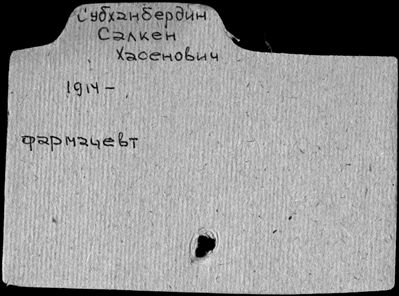 Субханбердин
Салкен
Хасенович
1914 -
фармацевт